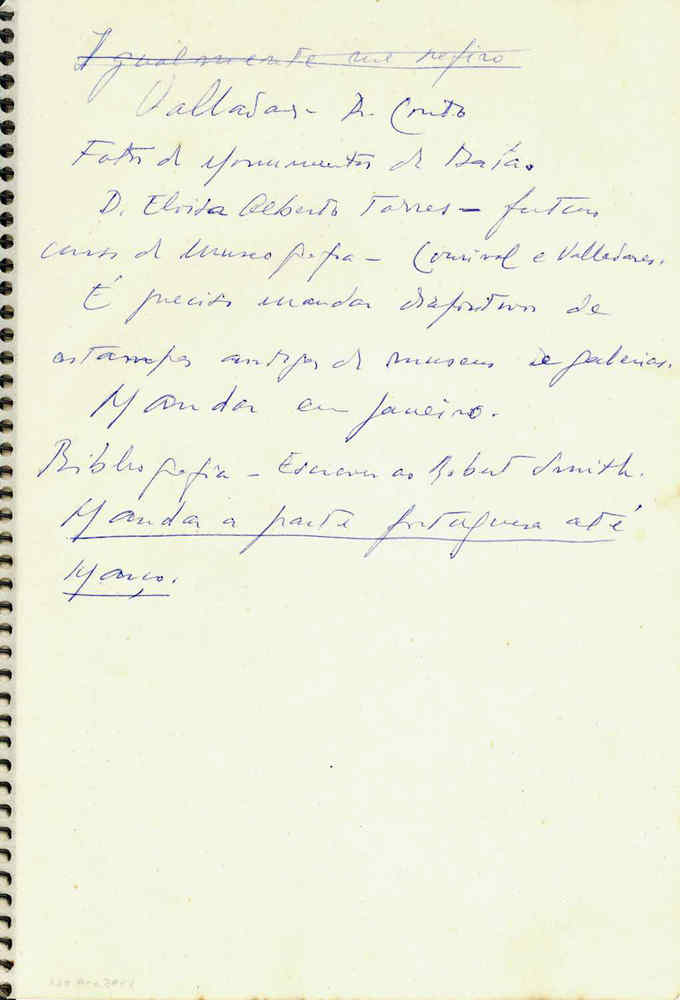 Igualmente me refiro
Valladares - D. Couto
Fotos de Monumentos da Baía.
D. Eloisa Alberto Torres - futuro
curso de Museografia - Lourival e Valladares.
É preciso mandar diapositivos de
estampas antigas de museus e galerias.
Mandar em Janeiro.
Bibliografia - Escrever ao Robert Smith.
Mandar a parte portuguesa até
Março.